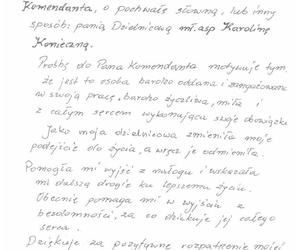 Komendanta, o pochwałę słowną, lub inny
sposób: panią Dzielnicową mł.asp Karolinę
Konieczną.
Prośbę do Pana Komendanta motywuję tym,
że jest to osoba bardzo oddana i zaangażowana
w swoją pracę, bardzo życzliwa, miła i
z całym sercem wykonująca swoje obowiązki
Jako moja dzielnicowa zmieniła moje
podejście do życia, a wręcz je odmieniła.
Pomogła mi wyjść z nałogu i wskazała
mi dalszą drogę ku lepszemu życiu.
Obecnie pomaga mi w wyjściu z
bezdomności, za co dziękuję jej całego
serca.
Dziękuję za pozytywne rozpatrzenie mojej